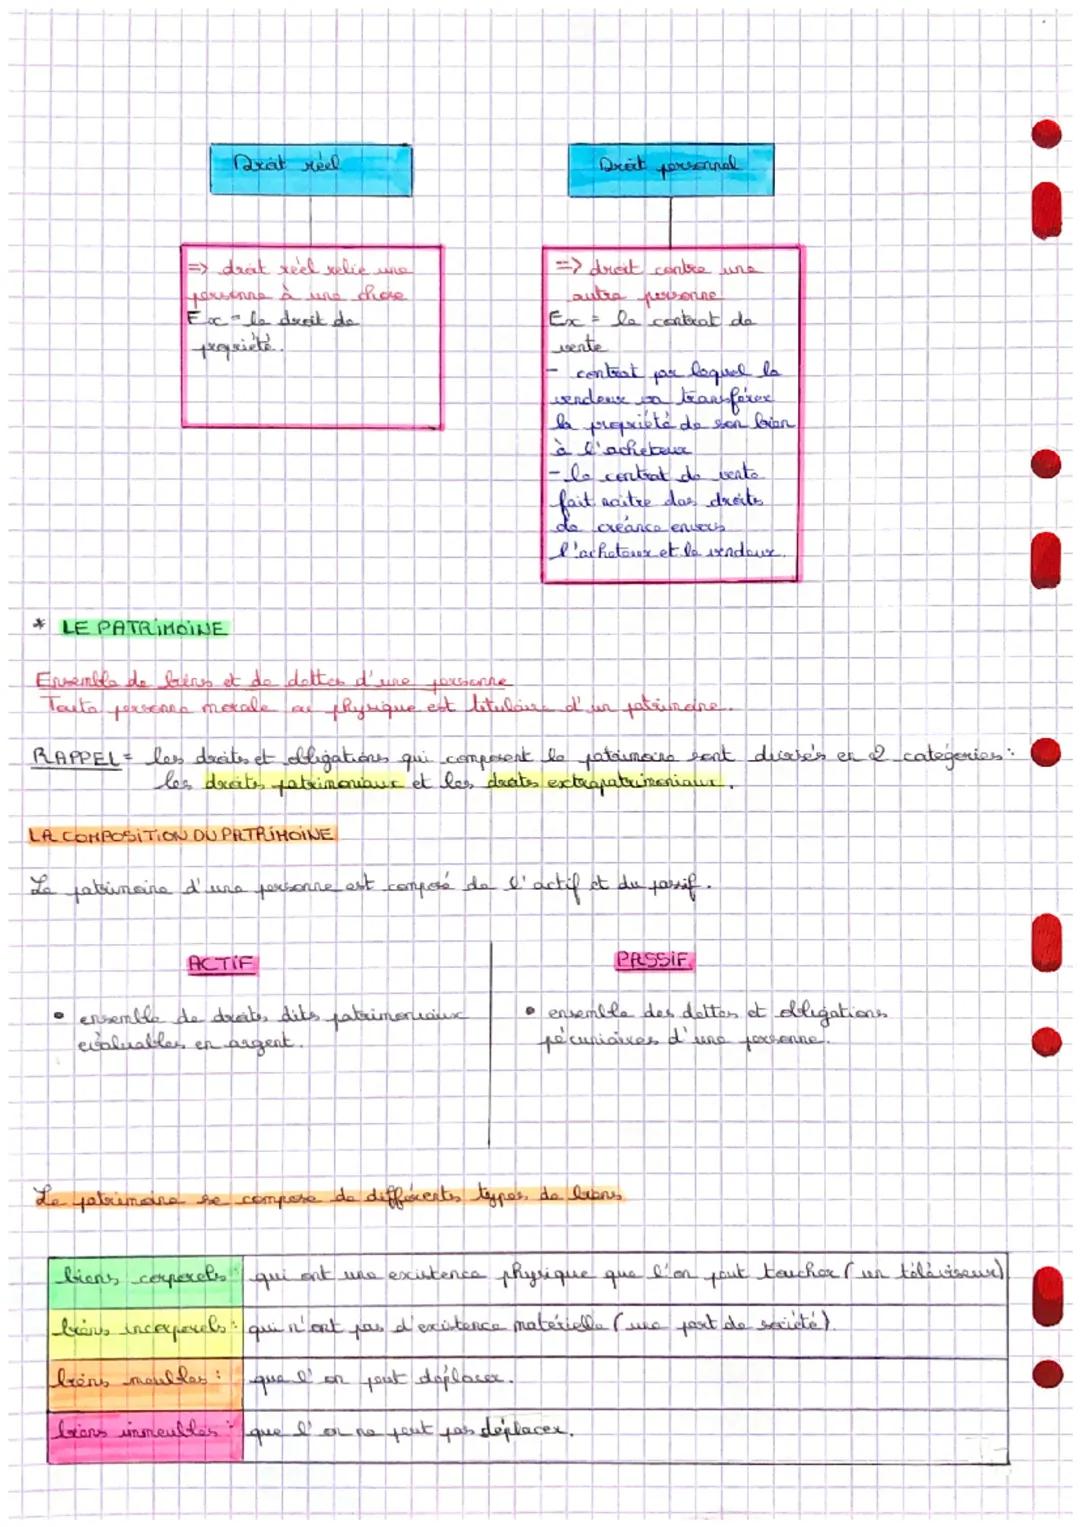 Droit réel
Droit personnel
=> droit réel relie une
personne à une chose
Ex = le droit de
propriété.
=> droit contre une
autre personne
Ex = le contrat de
vente
- contrat par lequel le
vendeur va transférer
la propriété de son bien
à l'acheteur
- le contrat de vente
fait naitre des droits
de créance envers
l'acheteur et le vendeur.
* LE PATRIMOINE
Ensemble de biens et de dettes d'une personne
Toute personne morale ou physique est titulaire d'un patrimoine.
RAPPEL = les droits et obligations qui composent le patrimoine sont divisés en 2 catégories :
les droits patrimoniaux et les droits extrapatrimoniaux.
LA COMPOSITION DU PATRIMOINE
Le patrimoine d'une personne est composé de l'actif et du passif.
ACTIF
PASSIF
• ensemble de droits dits patrimoniaux
évaluables en argent.
• ensemble des dettes et obligations
pécuniaires d'une personne.
Le patrimoine se compose de différents types de biens
biens corporels : qui ont une existence physique que l'on peut toucher (un téléviseur)
biens incorporels : qui n'ont pas d'existence matérielle (une part de société).
biens meubles : que l'on peut déplacer.
biens immeubles : que l'on ne peut pas déplacer.